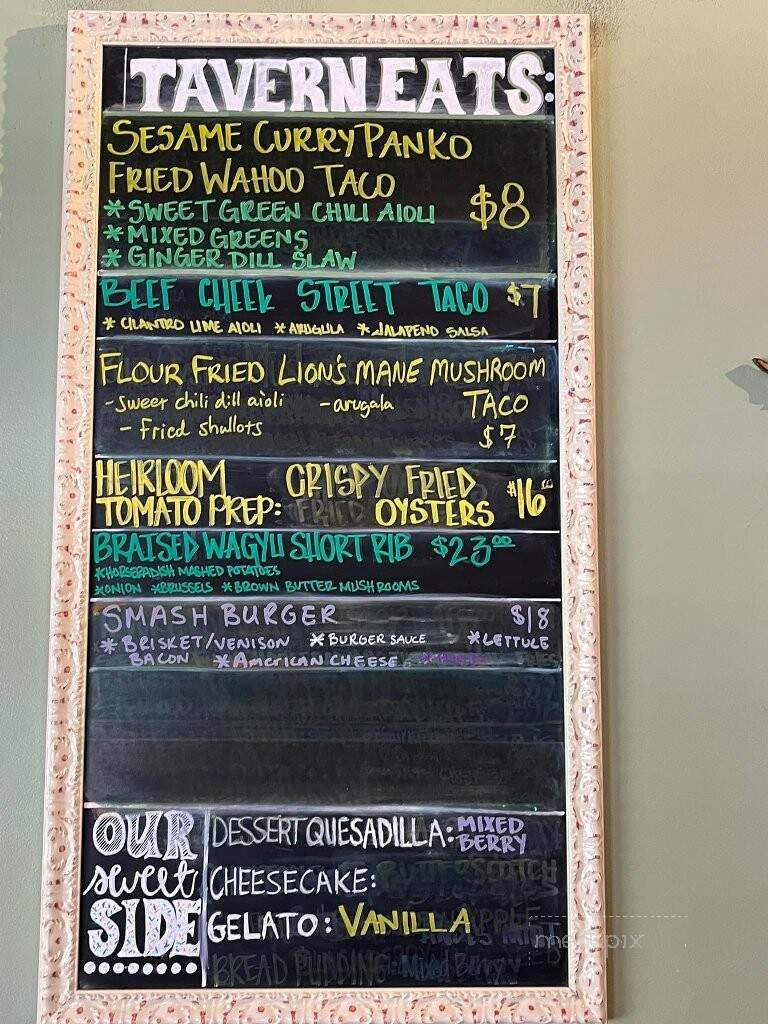 TAVERN EATS:
SESAME CURRY PANKO
FRIED WAHOO TACO
$8
* SWEET GREEN CHILI AIOLI
* MIXED GREENS
* GINGER DILL SLAW
BEEF CHEEK STREET TACO $7
* CILANTRO LIME AIOLI * ARUGULA * JALAPENO SALSA
FLOUR FRIED LION'S MANE MUSHROOM
- Sweet chili dill aioli - arugala TACO
- Fried shallots $7
HEIRLOOM CRISPY FRIED $16
TOMATO PREP: FRIED OYSTERS
BRAISED WAGYU SHORT RIB $23.00
* HORSERADISH MASHED POTATOES
* ONION * BRUSSELS * BROWN BUTTER MUSHROOMS
SMASH BURGER $18
* BRISKET/VENISON * BURGER SAUCE * LETTUCE
BACON * AMERICAN CHEESE
OUR
sweet
SIDE
DESSERT QUESADILLA: MIXED
BERRY
CHEESECAKE: BUTTERSCOTCH
GELATO: VANILLA
BREAD PUDDING: Mixed Berry